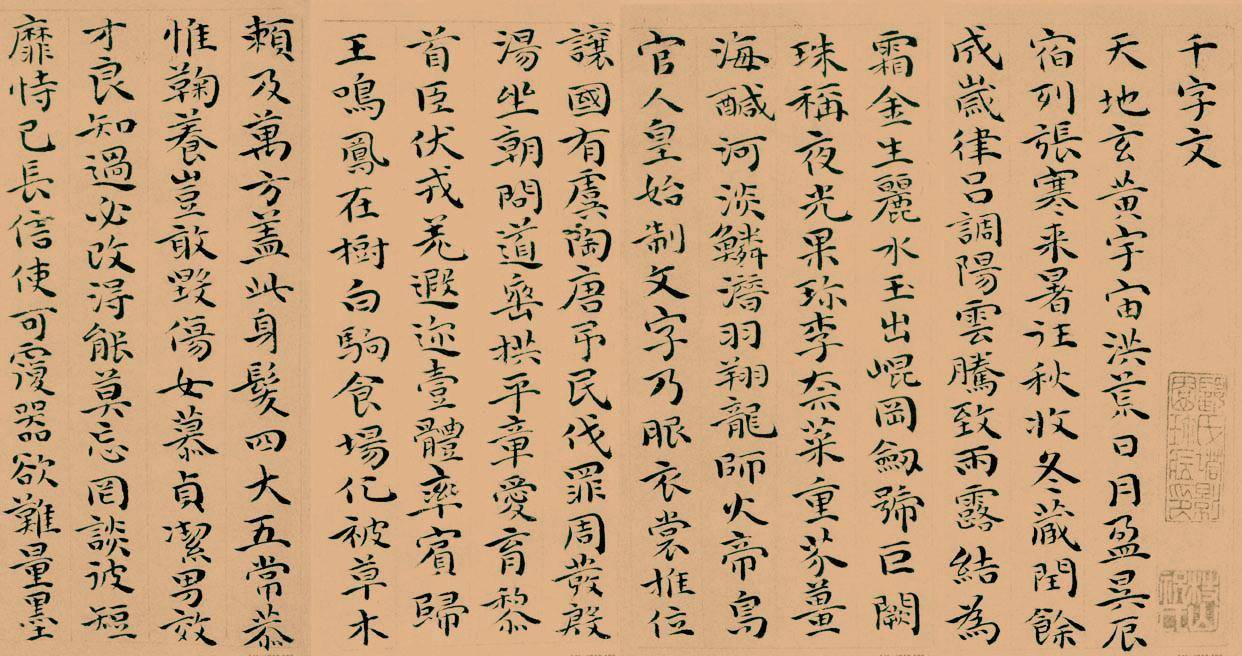 千字文
天地玄黃宇宙洪荒日月盈昃辰
宿列張寒来暑往秋收冬藏閏餘
成歲律呂調陽雲騰致雨露結為
霜金生麗水玉出崐岡劔號巨闕
珠稱夜光果珎李柰菜重芥薑
海醎河淡鱗潛羽翔龍師火帝鳥
官人皇始制文字乃服衣裳推位
讓國有虞陶唐弔民伐罪周發殷
湯坐朝問道垂拱平章愛育黎
首臣伏戎羌遐迩壹體率賓歸
王鳴鳳在樹白駒食場化被草木
賴及萬方盖此身髮四大五常恭
惟鞠養豈敢毀傷女慕貞潔男效
才良知過必改得能莫忘罔談彼短
靡恃己長信使可覆器欲難量墨